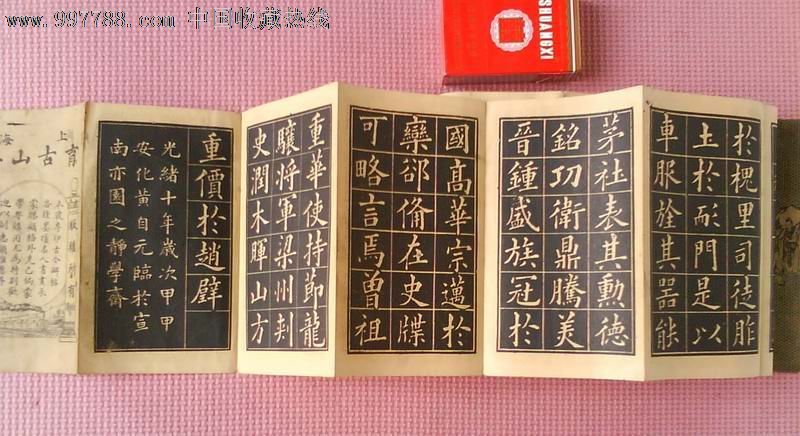 www.997788.com 中国收藏热线
SHUANGXI
於槐里司徒胙
土於耏門是以
車服旌其器能
茅社表其勳德
銘功衛鼎騰美
晉鍾盛族冠於
國高華宗邁於
欒郤俻在史牒
可略言焉曾祖
重華使持節龍
驤將軍梁州刾
史潤木暉山方
重價於趙璧
光緒十年歲次甲申
安化黃自元臨於宣
南亦園之靜學齋
上海
育古山
版權所有